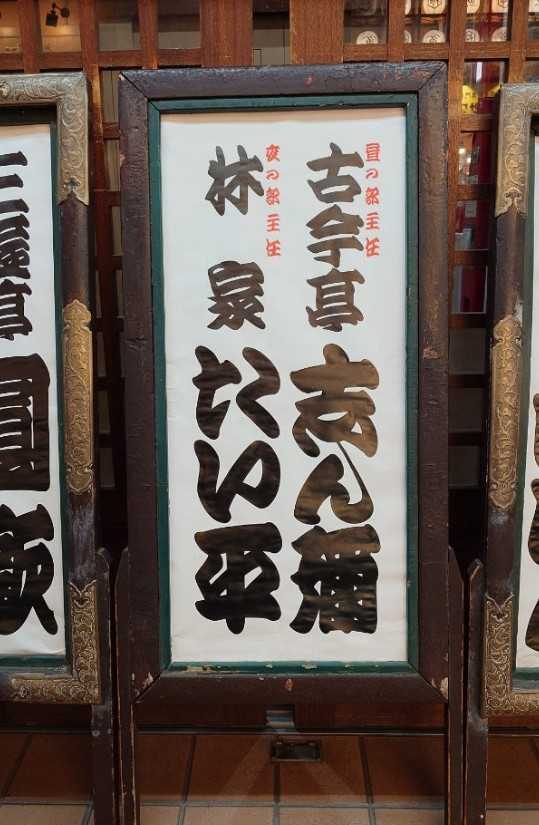 昼の部主任
古今亭志ん彌
夜の部主任
林家たい平
三遊亭圓歌